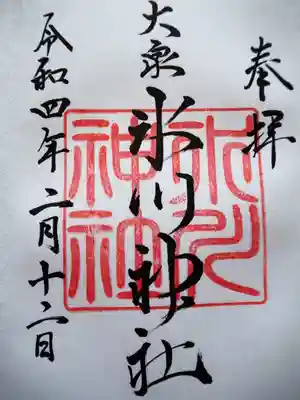 奉拝
大泉
氷川神社
令和四年二月十二日
氷川
神社